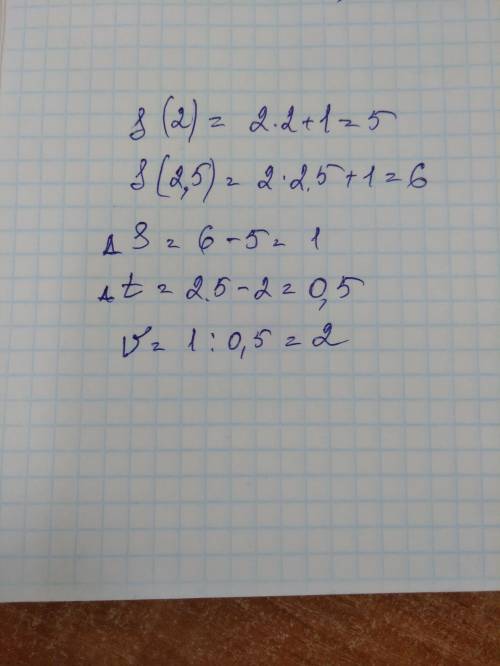 S(2) = 2·2+1=5
S(2,5) = 2·2.5+1=6
ΔS = 6-5= 1
Δt = 2.5-2=0,5
V= 1:0,5=2